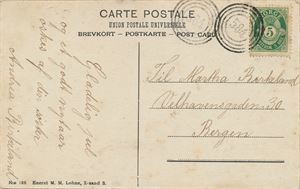 CARTE POSTALE
UNION POSTALE UNIVERSELLE
BREVKORT - POSTKARTE - POST CARD
Glædelig jul
og et godt nytaar
ønskes af din søster
Andrea Birkeland
Til Martha Birkeland
Velhavensgaden 20
Bergen
NORGE
5
No 122 Eneret M. M. Lohne, X-sand S.